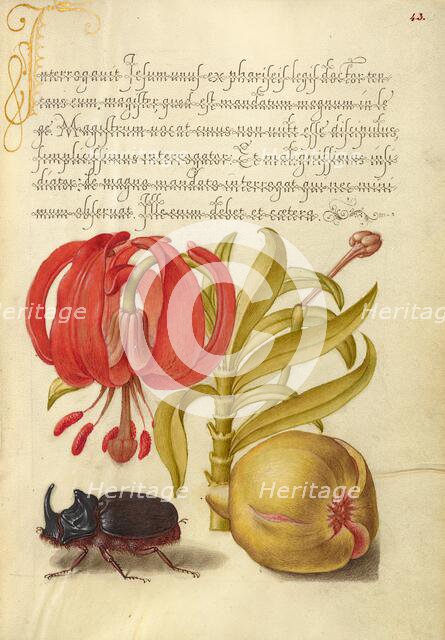 43.
Interrogauit Jesum unus ex phariseis legis doctor ten
tans eum magister quod est mandatum magnum in le
ge. Magistrum uocat cuius non uult esse discipulus
simplicissimus interrogator. Et malignissimus insi
diator: de magno mandato interrogat qui nec mini
mum obseruat. Ille enim debet et cetera.
Heritage Heritage Heritage
Heritage Heritage Heritage
Heritage Heritage Heritage